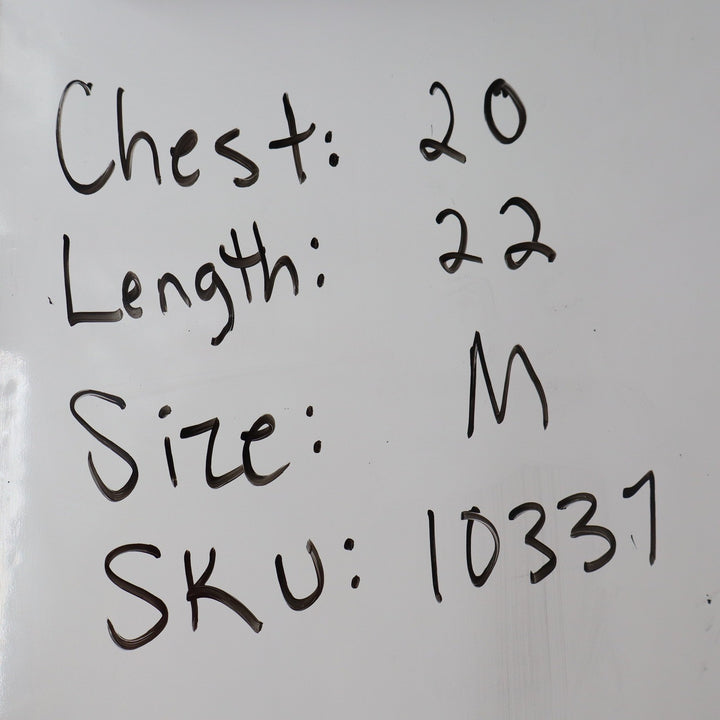 Chest: 20
Length: 22
Size: M
SKU: 10337